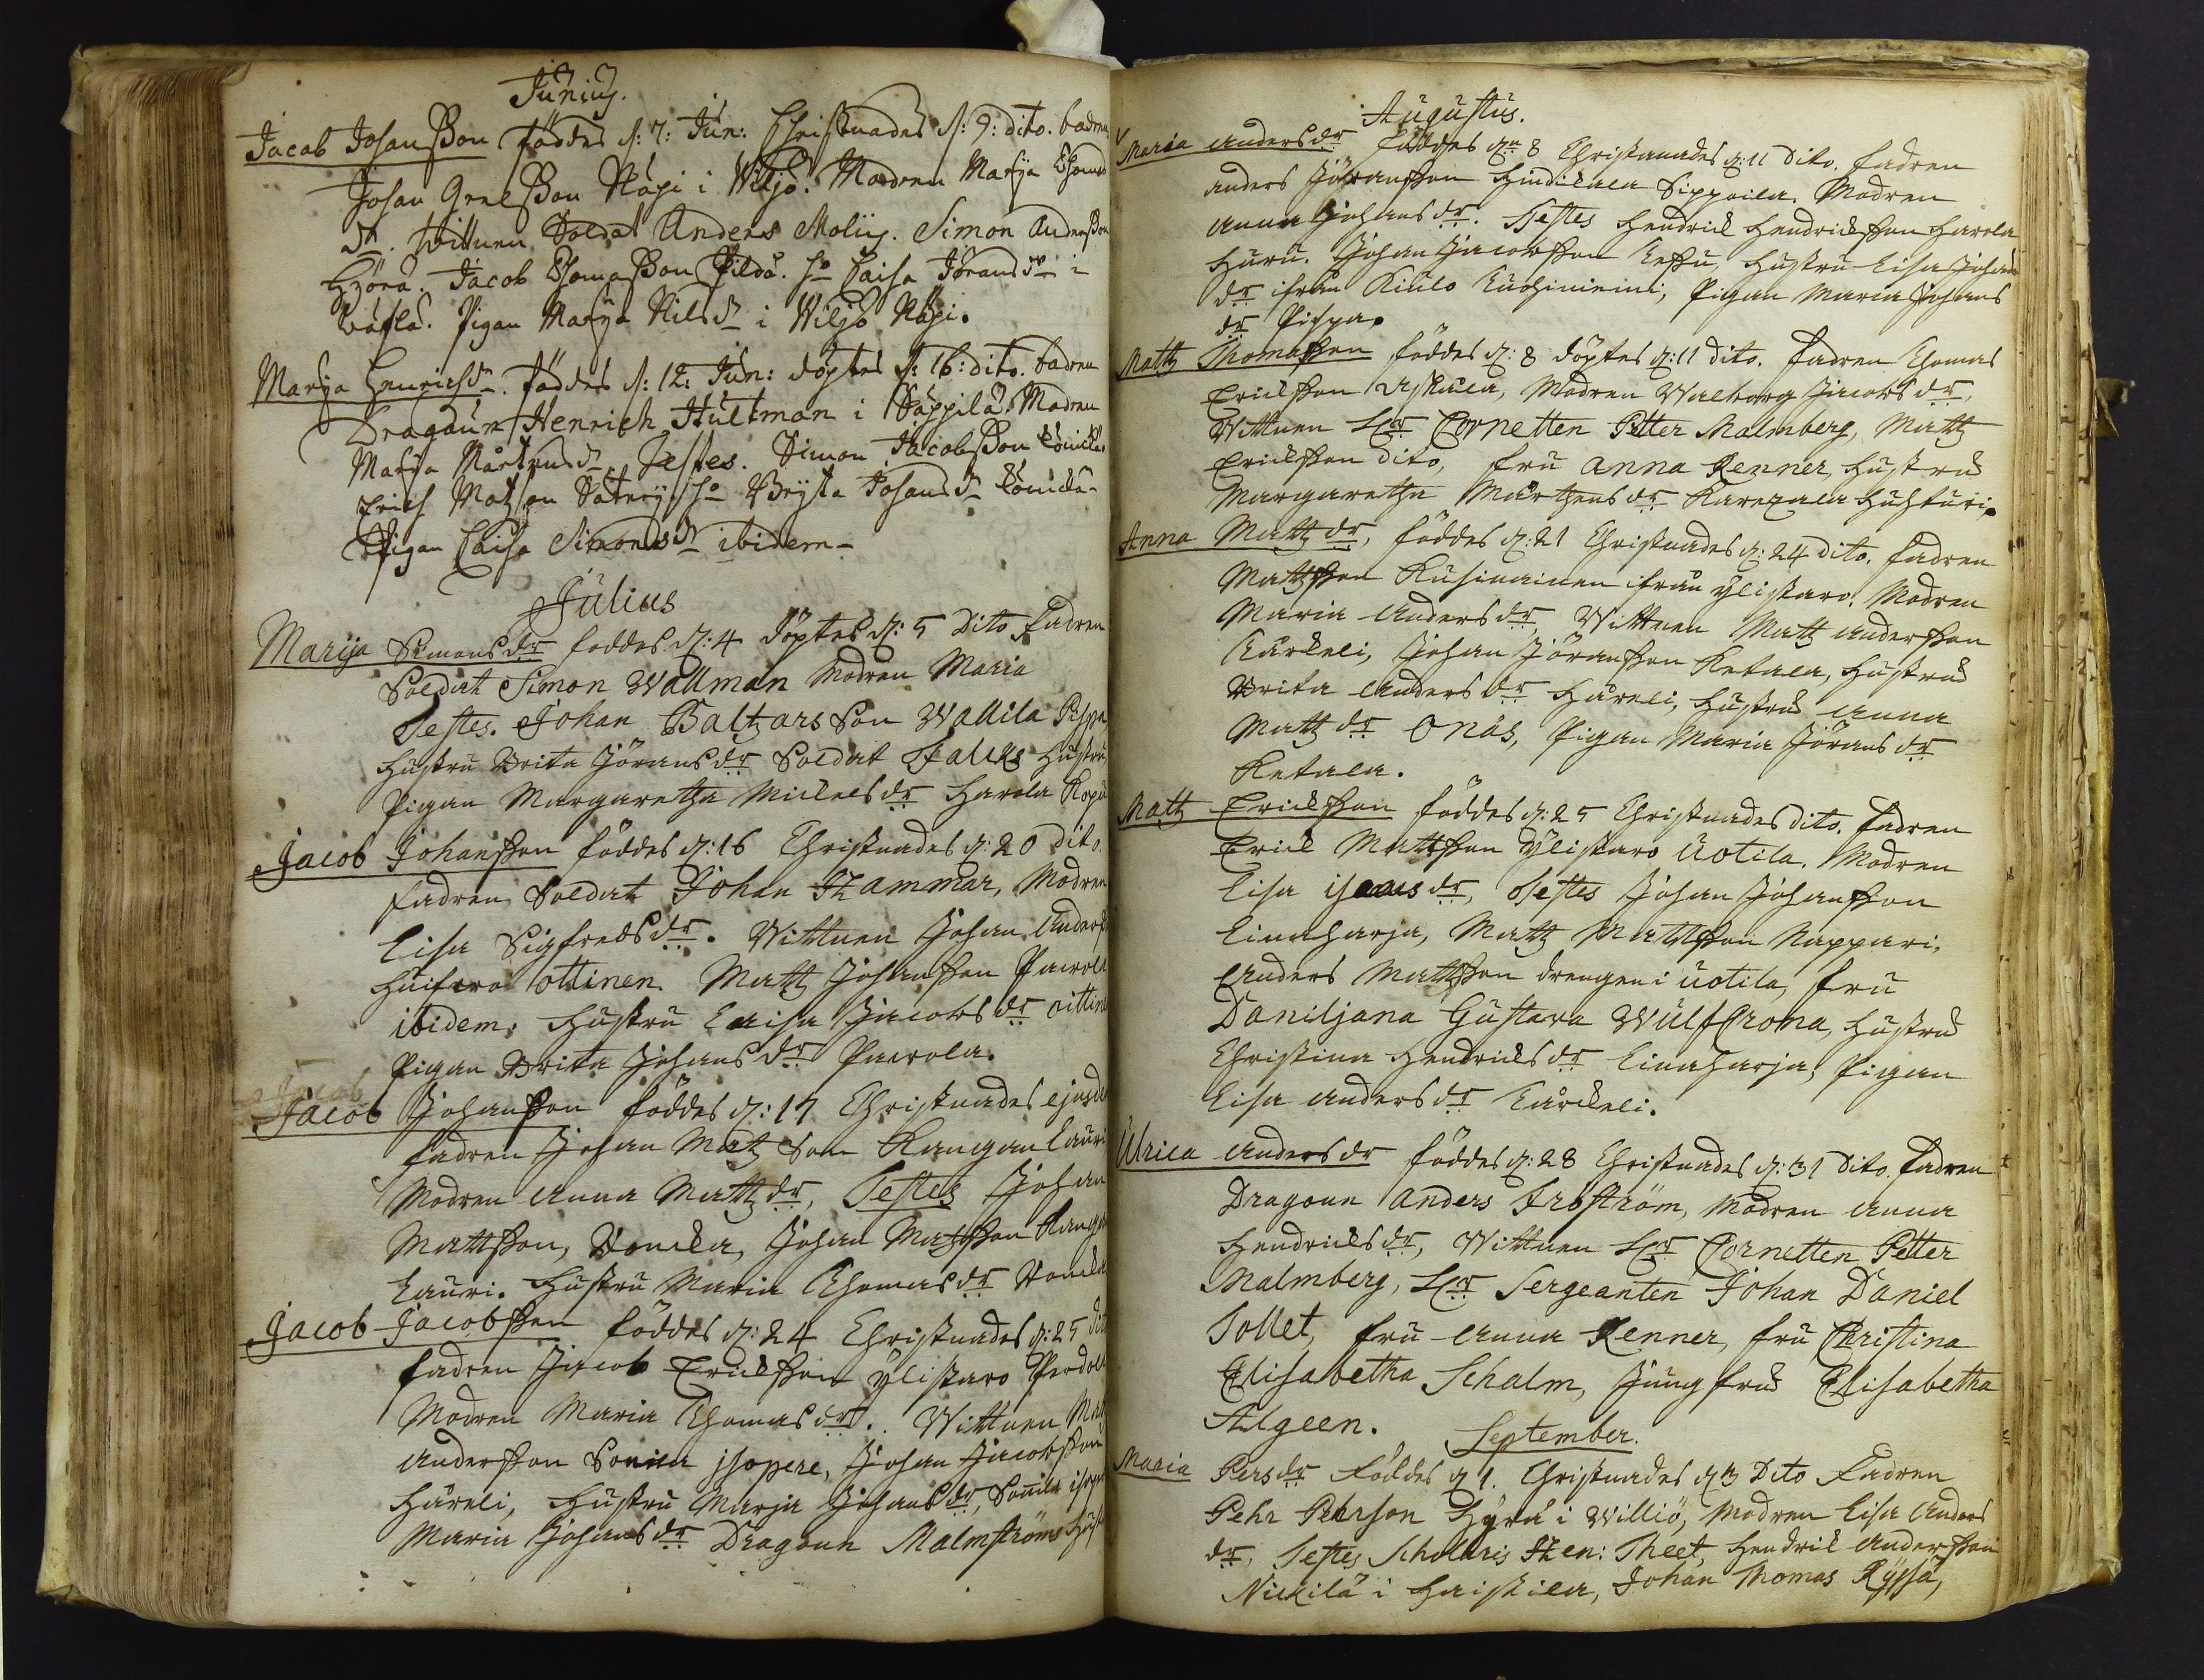 Junius.
Jacob Johansson föddes d: 7: Jun: Christnades d: 9: dito. Fadren
Johan Grelsson Näpi i Wiljo. Modren Marja Thoms
dr. Wittnen Soldat Anders Molin. Simon Andersson
Hyörä. Jacob Thomasson Pildä. H:o Caisa Jöransdr i
Pigan Marja Nilsdr i Wiljo Näpi.
Marja Henrichsdr. föddes d: 12: Jun: döptes d: 16: dito. Fadren
Dragoun Henrich Hultman i Säppilä. Modren
Marja Mårtensdr. Testes. Simon Jacobsson
Erich Matsson H:o Brysta Johansdr
Pigan Caisa Simonsdr ibidem
Julius
Marija Simonsdr föddes d: 4 döptes d: 5 Dito Fadren
Soldat Simon Wallman Modren Maria
Testes. Johan Baltzarsson Wallila Pispa
hustru Brita Jöransdr Soldat Falcks hustru
Pigan Margaretha Mickelsdr Harola
Jacob Johansson föddes d: 16 Christnades d: 20 dito.
Fadren Soldat Johan Hammar, Modren
Lisa Sigfredsdr. Wittnen Johan Anders
Ottinen. Matz Johansson Pawola
ibidem. hustru Caisa Jacobsdr oittin
Pigan Brita Johansdr Pawola.
Jacob
Jacob Johansson föddes d: 17 Christnades ejusde
Fadren Johan Matz Son Kangan Lauri
Modren Anna Matzdr, Testes Johan
Mattsson, Johan Matzsson Kanga
Lauri. Hustru Maria Thomasdr
Jacob Jacobsson föddes d: 24 Christnades d: 25 dito
Fadren Jacob Ericksson Ylistaro Perdola
Modren Maria Thomasdr. Wittnen Matz
Andersson Sonila isopere, Johan Jacobsson
Häreli, hustru Marja Johansdr, Sonila isope
Maria Johansdr Dragoun Malmströms hust
Augustus.
Maria Andersdr föddes dn 8 Christnades d: 11 dito. Fadren
Anders Jöransson Hindikala Sippoila. Modren
Anna Johansdr. Testes Hendrick Hendricksson Harola
Huru. Johan Jacobsson hustru Lisa Johans
dr ifrån Kiulo Pigan Maria Johans
dr Pispa.
Matz Thomasson föddes d: 8 döptes d: 11 dito. Fadren Thomas
Ericksson Modren Walborg Jacobsdr,
Wittnen Hr Cornetten Petter Malmberg, Matz
Ericksson dito, Fru Anna Renner, hustru
Margaretha Mårthensdr Karezala
Anna Matzdr, föddes d: 21 Christnades d: 24 dito. Fadren
Matzson Kuhinainen ifrån Ylistaro. Modren
Maria Andersdr Wittnen Matz Andersson
Kärkeli, Johan Jöransson Ketala, hustru
Brita Andersdr Häreli, hustru Anna
Matzdr Onäs, Pigan Maria Jöransdr
Ketala.
Matz Ericksson föddes d: 25 Christnades dito. Fadren
Erick Mattsson Ylistaro Uotila. Modren
Lisa Isacsdr, Testes Johan Johansson
Linaharja, Matz Mattsson Nappari,
Anders Mattsson drengen i Uotila, Fru
Daniljana Gustava Wulfcrona, hustru
Christina Hendricksdr Linaharja, Pigan
Lisa Andersdr Kärckeli.
Ulrica Andersdr föddes d: 28 Christnades d: 31 dito. Fadren
Dragoun Anders Fröström, Modren Anna
Hendricksdr, Wittnen Hr Cornetten Petter
Malmberg, Hr Sergeanten Johan Daniel
Tollet, Fru Anna Renner, Fru Christina
Elisabetha Schalm, Jungfru Elisabetha
Algeen.
September.
Maria Persdr föddes d 1. Christnades d 3 dito Fadren
Pehr Pehrson Hyrä i Williö, Modren Lisa Anders
dr, Testes Scholaris Hen: Theet, Hendrik Andersson
Nickilä i Johan Thomas Ryssä,